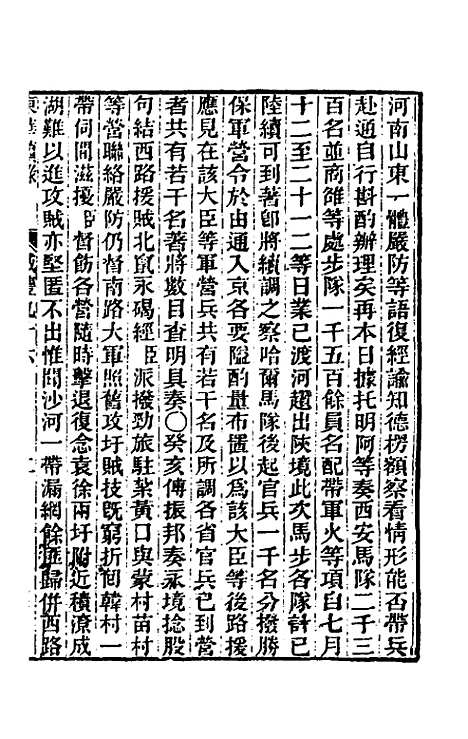 河南山東一體嚴防等語復經諭知德楞額察看情形能否帶兵
赴通自行斟酌辦理矣再本日據托明阿等奏西安馬隊二千三
百名並商雒等處步隊一千五百餘員名配帶軍火等項自七月
十二至二十一二等日業已渡河超出陝境此次馬步各隊計已
陸續可到著卽將續調之察哈爾馬隊後起官兵一千名分撥勝
保軍營令於由通入京各要隘酌量布置以爲該大臣等後路援
應見在該大臣等軍營兵共有若干名及所調各省官兵已到營
者共有若干名著將數目查明具奏○癸亥傅振邦奏永境捻股
句結西路援賊北竄永碭經臣派撥勁旅駐紮黃口與蒙村苗村
等營聯絡嚴防仍督南路大軍照舊攻圩賊技旣窮折向韓村一
帶伺間滋擾臣督飭各營隨時擊退復念袁徐兩圩附近積潦成
湖難以進攻賊亦堅匿不出惟間沙河一帶漏網餘匪歸併西路